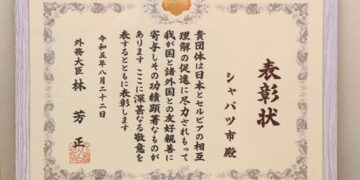 表彰状
シャバツ市殿
貴団体は日本とセルビアの相互
理解の促進に尽力されもって
我が国と諸外国との友好親善に
寄与しその功績顕著なものが
あります ここに深甚なる敬意を
表するとともに表彰します
令和五年八月二十二日
外務大臣 林 芳正